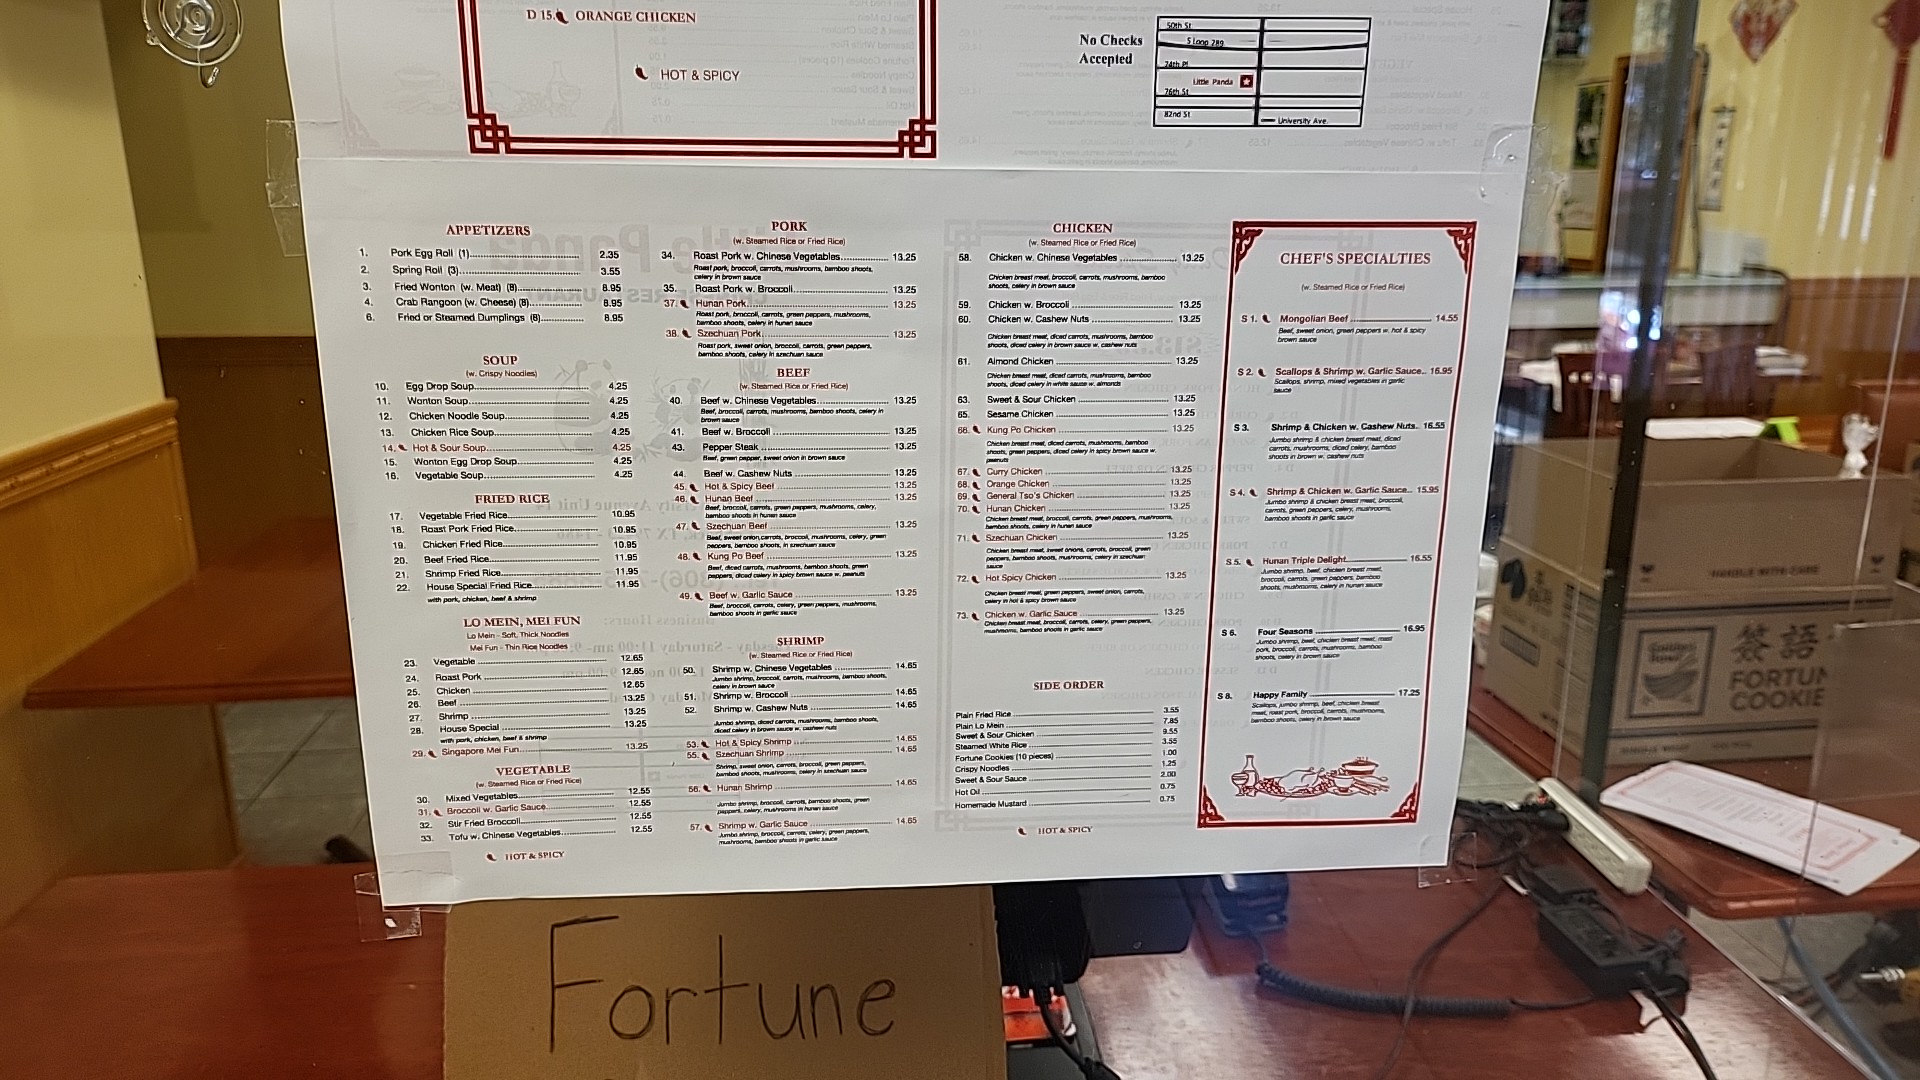 D 15. ORANGE CHICKEN
HOT & SPICY
No Checks
Accepted
50th St.
S Loop 289
74th Pl.
Little Panda
76th St.
82nd St.
University Ave.
APPETIZERS
1. Pork Egg Roll (1) 2.35
2. Spring Roll (3) 3.55
3. Fried Wonton (w. Meat) (8) 8.95
4. Crab Rangoon (w. Cheese) (8) 8.95
6. Fried or Steamed Dumplings (8) 8.95
SOUP
(w. Crispy Noodles)
10. Egg Drop Soup 4.25
11. Wonton Soup 4.25
12. Chicken Noodle Soup 4.25
13. Chicken Rice Soup 4.25
14. Hot & Sour Soup 4.25
15. Wonton Egg Drop Soup 4.25
16. Vegetable Soup 4.25
FRIED RICE
17. Vegetable Fried Rice 10.95
18. Roast Pork Fried Rice 10.95
19. Chicken Fried Rice 10.95
20. Beef Fried Rice 11.95
21. Shrimp Fried Rice 11.95
22. House Special Fried Rice 11.95
with pork, chicken, beef & shrimp
LO MEIN, MEI FUN
Lo Mein - Soft, Thick Noodles
Mei Fun - Thin Rice Noodles
23. Vegetable 12.65
24. Roast Pork 12.65
25. Chicken 12.65
26. Beef 13.25
27. Shrimp 13.25
28. House Special 13.25
with pork, chicken, beef & shrimp
29. Singapore Mei Fun 13.25
VEGETABLE
(w. Steamed Rice or Fried Rice)
30. Mixed Vegetables 12.55
31. Broccoli w. Garlic Sauce 12.55
32. Stir Fried Broccoli 12.55
33. Tofu w. Chinese Vegetables 12.55
HOT & SPICY
PORK
(w. Steamed Rice or Fried Rice)
34. Roast Pork w. Chinese Vegetables 13.25
Roast pork, broccoli, carrots, mushrooms, bamboo shoots,
celery in brown sauce
35. Roast Pork w. Broccoli 13.25
37. Hunan Pork 13.25
Roast pork, broccoli, carrots, green peppers, mushrooms,
bamboo shoots, celery in hunan sauce
38. Szechuan Pork 13.25
Roast pork, sweet onion, broccoli, carrots, green peppers,
bamboo shoots, celery in szechuan sauce
BEEF
(w. Steamed Rice or Fried Rice)
40. Beef w. Chinese Vegetables 13.25
Beef, broccoli, carrots, mushrooms, bamboo shoots, celery in
brown sauce
41. Beef w. Broccoli 13.25
43. Pepper Steak 13.25
Beef, green pepper, sweet onion in brown sauce
44. Beef w. Cashew Nuts 13.25
45. Hot & Spicy Beef 13.25
46. Hunan Beef 13.25
Beef, broccoli, carrots, green peppers, mushrooms, celery,
bamboo shoots in hunan sauce
47. Szechuan Beef 13.25
Beef, sweet onion,carrots, broccoli, mushrooms, celery, green
peppers, bamboo shoots, in szechuan sauce
48. Kung Po Beef 13.25
Beef, diced carrots, mushrooms, bamboo shoots, green
peppers, diced celery in spicy brown sauce w. peanuts
49. Beef w. Garlic Sauce 13.25
Beef, broccoli, carrots, celery, green peppers, mushrooms,
bamboo shoots in garlic sauce
SHRIMP
(w. Steamed Rice or Fried Rice)
50. Shrimp w. Chinese Vegetables 14.65
Jumbo shrimp, broccoli, carrots, mushrooms, bamboo shoots,
celery in brown sauce
51. Shrimp w. Broccoli 14.65
52. Shrimp w. Cashew Nuts 14.65
Jumbo shrimp, diced carrots, mushrooms, bamboo shoots,
diced celery in brown sauce w. cashew nuts
53. Hot & Spicy Shrimp 14.65
55. Szechuan Shrimp 14.65
Shrimp, sweet onion, carrots, broccoli, green peppers,
bamboo shoots, mushrooms, celery in szechuan sauce
56. Hunan Shrimp 14.65
Jumbo shrimp, broccoli, carrots, bamboo shoots, green
peppers, celery, mushrooms in hunan sauce
57. Shrimp w. Garlic Sauce 14.65
Jumbo shrimp, broccoli, carrots, celery, green peppers,
mushrooms, bamboo shoots in garlic sauce
CHICKEN
(w. Steamed Rice or Fried Rice)
58. Chicken w. Chinese Vegetables 13.25
Chicken breast meat, broccoli, carrots, mushrooms, bamboo
shoots, celery in brown sauce
59. Chicken w. Broccoli 13.25
60. Chicken w. Cashew Nuts 13.25
Chicken breast meat, diced carrots, mushrooms, bamboo
shoots, diced celery in brown sauce w. cashew nuts
61. Almond Chicken 13.25
Chicken breast meat, diced carrots, mushrooms, bamboo
shoots, diced celery in white sauce w. almonds
63. Sweet & Sour Chicken 13.25
65. Sesame Chicken 13.25
66. Kung Po Chicken 13.25
Chicken breast meat, diced carrots, mushrooms, bamboo
shoots, green peppers, diced celery in spicy brown sauce w.
peanuts
67. Curry Chicken 13.25
68. Orange Chicken 13.25
69. General Tso's Chicken 13.25
70. Hunan Chicken 13.25
Chicken breast meat, broccoli, carrots, green peppers, mushrooms,
bamboo shoots, celery in hunan sauce
71. Szechuan Chicken 13.25
Chicken breast meat, sweet onions, carrots, broccoli, green
peppers, bamboo shoots, mushrooms, celery in szechuan
sauce
72. Hot Spicy Chicken 13.25
Chicken breast meat, green peppers, sweet onion, carrots,
celery in hot & spicy brown sauce
73. Chicken w. Garlic Sauce 13.25
Chicken breast meat, broccoli, carrots, celery, green peppers,
mushrooms, bamboo shoots in garlic sauce
SIDE ORDER
Plain Fried Rice 3.55
Plain Lo Mein 7.85
Sweet & Sour Chicken 9.55
Steamed White Rice 3.55
Fortune Cookies (10 pieces) 1.00
Crispy Noodles 1.25
Sweet & Sour Sauce 2.00
Hot Oil 0.75
Homemade Mustard 0.75
HOT & SPICY
CHEF'S SPECIALTIES
(w. Steamed Rice or Fried Rice)
S 1. Mongolian Beef 14.55
Beef, sweet onion, green peppers w. hot & spicy
brown sauce
S 2. Scallops & Shrimp w. Garlic Sauce.. 16.95
Scallops, shrimp, mixed vegetables in garlic
sauce
S 3. Shrimp & Chicken w. Cashew Nuts.. 16.55
Jumbo shrimp & chicken breast meat, diced
carrots, mushrooms, diced celery, bamboo
shoots in brown sauce w. cashew nuts
S 4. Shrimp & Chicken w. Garlic Sauce.. 15.95
Jumbo shrimp & chicken breast meat, broccoli,
carrots, celery, green peppers, mushrooms,
bamboo shoots in garlic sauce
S 5. Hunan Triple Delight 16.55
Jumbo shrimp, beef, chicken breast meat,
broccoli, carrots, green peppers, bamboo
shoots, mushrooms, celery in hunan sauce
S 6. Four Seasons 16.95
Jumbo shrimp, beef, chicken breast meat, roast
pork, broccoli, carrots, mushrooms, bamboo
shoots, celery in brown sauce
S 8. Happy Family 17.25
Scallops, jumbo shrimp, beef, chicken breast
meat, roast pork, broccoli, carrots, mushrooms,
bamboo shoots, celery in brown sauce
HANDLE WITH CARE
Golden Bowl
FORTUN
COOKIE
Fortune